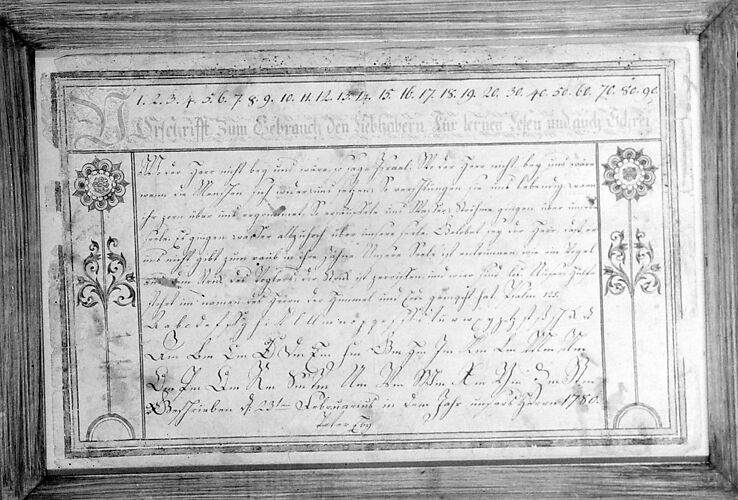 1. 2. 3. 4. 5. 6. 7. 8. 9. 10. 11. 12. 13. 14. 15. 16. 17. 18. 19. 20. 30. 40. 50. 60. 70. 80. 90
Vorschrifft Zum Gebrauch den Liebhabern Für lernen Lesen und auch Schrei
Wo der Herr nicht bey uns wäre, so sage Israel. Wo der Herr nicht bey uns wäre
wenn die Menschen sich wider uns setzen, So verschlingen sie uns lebendig, wenn
ihr zorn über uns ergrimmet, So ersäuffete uns Wasser, Ströhme gingen über unsere
seele. Es gingen wasser allzuhoch über unsere seele. Gelobet sey der Herr daß er
uns nicht gibt zum raub in ihre zähne. Unsere Seele ist entrinnen, wie ein Vogel
dem Strick des Voglers, der Strick ist zerrissen, und wir sind los. Unsere Hülfe
stehet im namen des Herrn der Himmel und Erd gemacht hat. Psalm
a b c d e f g h i k l m n o p q r s t u v w x y z
Am Bm Cm Dm Em Fm Gm Hm Im Km Lm Mm Nm
Om Pm Qm Rm Sm Tm Um Vm Wm Xm Ym Zm
Geschrieben d. 23ten Februarius in dem Jahr unsers Herrn 1780.
Peter Eby